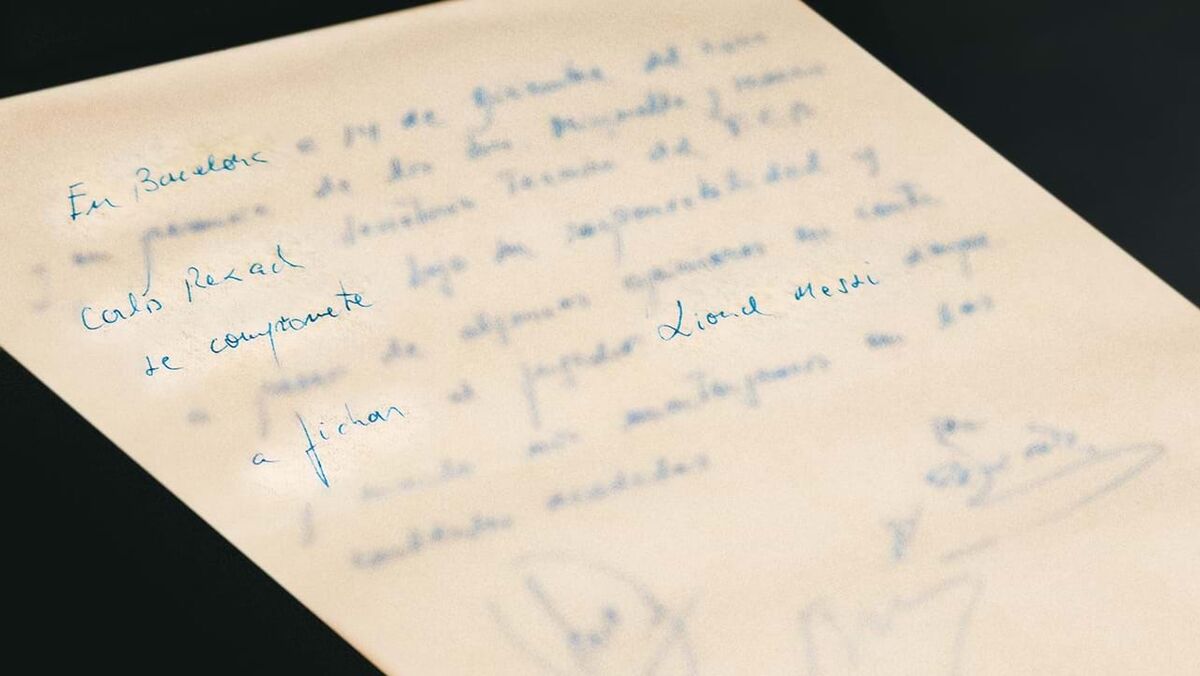 En Barcelona a 14 de diciembre del
y en presencia de los Minguella y
Carlos Rexach del F.C.B
se compromete bajo su responsabilidad y
a pesar de algunas opiniones en contra
a fichar al jugador Lionel Messi siempre
y cuando nos mantengamos en las
cantidades acordadas